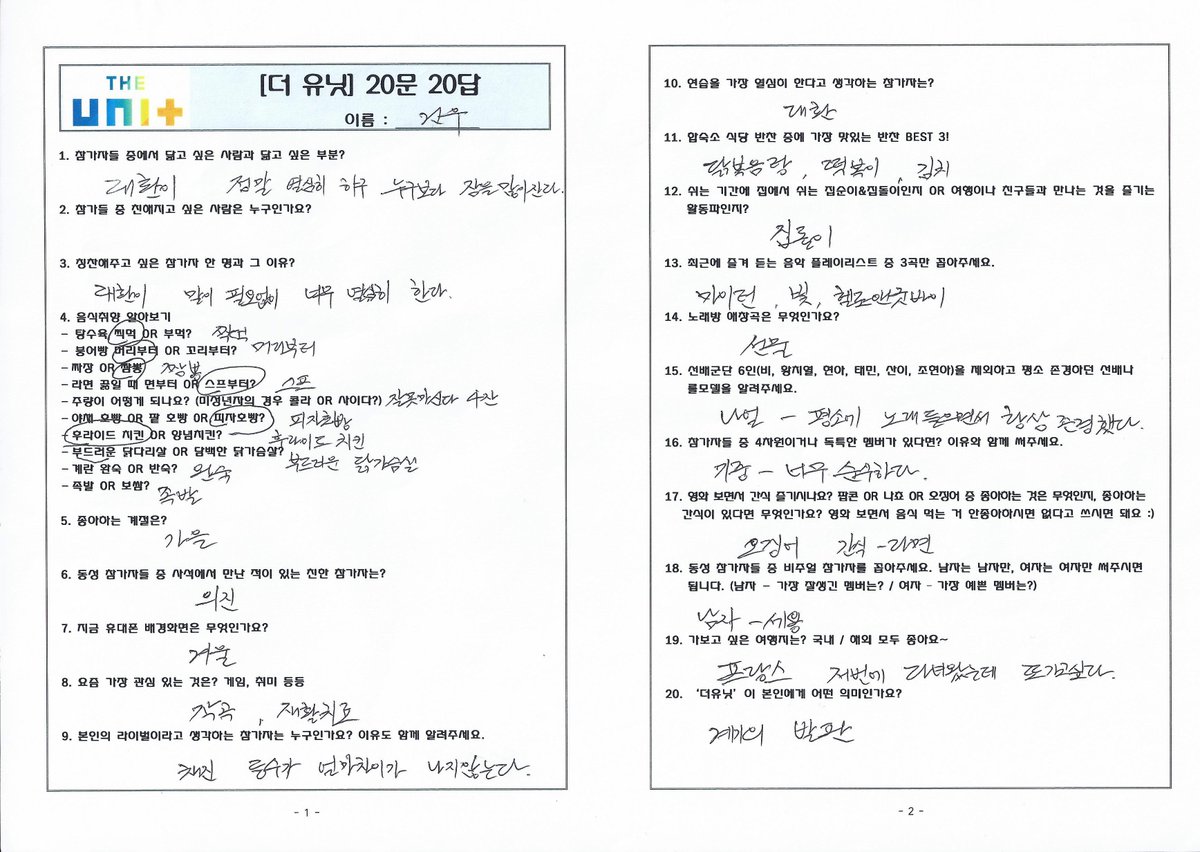 THE
UNI+
[더 유닛] 20문 20답
이름 : 찬우
1. 참가자들 중에서 닮고 싶은 사람과 닮고 싶은 부분?
대환이 정말 열심히 하구 누구보다 잠을 많이잔다.
2. 참가들 중 친해지고 싶은 사람은 누구인가요?
3. 칭찬해주고 싶은 참가자 한 명과 그 이유?
대환이 말이 필요없이 너무 열심히 한다.
4. 음식취향 알아보기
- 탕수육 찍먹 OR 부먹? 찍먹
- 붕어빵 머리부터 OR 꼬리부터? 머리부터
- 짜장 OR 짬뽕 짬뽕
- 라면 끓일 때 면부터 OR 스프부터? 스프
- 주량이 어떻게 되나요? (미성년자의 경우 콜라 OR 사이다?) 잘못마신다 4잔
- 야채 호빵 OR 팥 호빵 OR 피자호빵? 피자호빵
- 후라이드 치킨 OR 양념치킨? 후라이드 치킨
- 부드러운 닭다리살 OR 담백한 닭가슴살? 부드러운 닭가슴살
- 계란 완숙 OR 반숙? 완숙
- 족발 OR 보쌈? 족발
5. 좋아하는 계절은?
가을
6. 동성 참가자들 중 사석에서 만난 적이 있는 친한 참가자는?
의진
7. 지금 휴대폰 배경화면은 무엇인가요?
겨울
8. 요즘 가장 관심 있는 것은? 게임, 취미 등등
작곡 , 재활치료
9. 본인의 라이벌이라고 생각하는 참가자는 누구인가요? 이유도 함께 알려주세요.
채진 등수가 얼마차이가 나지않는다.
- 1 -
10. 연습을 가장 열심이 한다고 생각하는 참가자는?
대환
11. 합숙소 식당 반찬 중에 가장 맛있는 반찬 BEST 3!
닭볶음탕 , 떡볶이 , 김치
12. 쉬는 기간에 집에서 쉬는 집순이&집돌이인지 OR 여행이나 친구들과 만나는 것을 즐기는
활동파인지?
집돌이
13. 최근에 즐겨 듣는 음악 플레이리스트 중 3곡만 꼽아주세요.
마이턴 , 빛 , 헬로앤굿바이
14. 노래방 애창곡은 무엇인가요?
선물
15. 선배군단 6인(비, 황치열, 현아, 태민, 산이, 조현아)을 제외하고 평소 존경하던 선배나
롤모델을 알려주세요.
나얼 - 평소에 노래들으면서 항상 존경했다.
16. 참가자들 중 4차원이거나 독특한 멤버가 있다면? 이유와 함께 써주세요.
기중 - 너무 순수하다.
17. 영화 보면서 간식 즐기시나요? 팝콘 OR 나쵸 OR 오징어 중 좋아하는 것은 무엇인지, 좋아하는
간식이 있다면 무엇인가요? 영화 보면서 음식 먹는 거 안좋아하시면 없다고 쓰시면 돼요 :)
오징어 간식 - 라면
18. 동성 참가자들 중 비주얼 참가자를 꼽아주세요. 남자는 남자만, 여자는 여자만 써주시면
됩니다. (남자 - 가장 잘생긴 멤버는? / 여자 - 가장 예쁜 멤버는?)
남자 - 세용
19. 가보고 싶은 여행지는? 국내 / 해외 모두 좋아요~
프랑스 저번에 다녀왔는데 또가고싶다.
20. ‘더유닛’ 이 본인에게 어떤 의미인가요?
계기의 발판
- 2 -